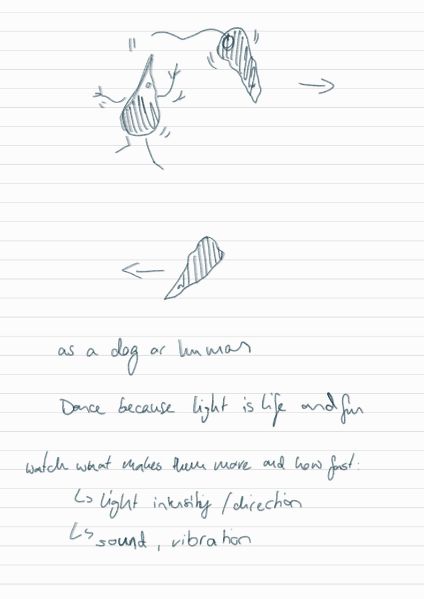 as a dog or human
Dance because light is life and fun
watch what makes them move and how fast:
↳ light intensity / direction
↳ sound, vibration